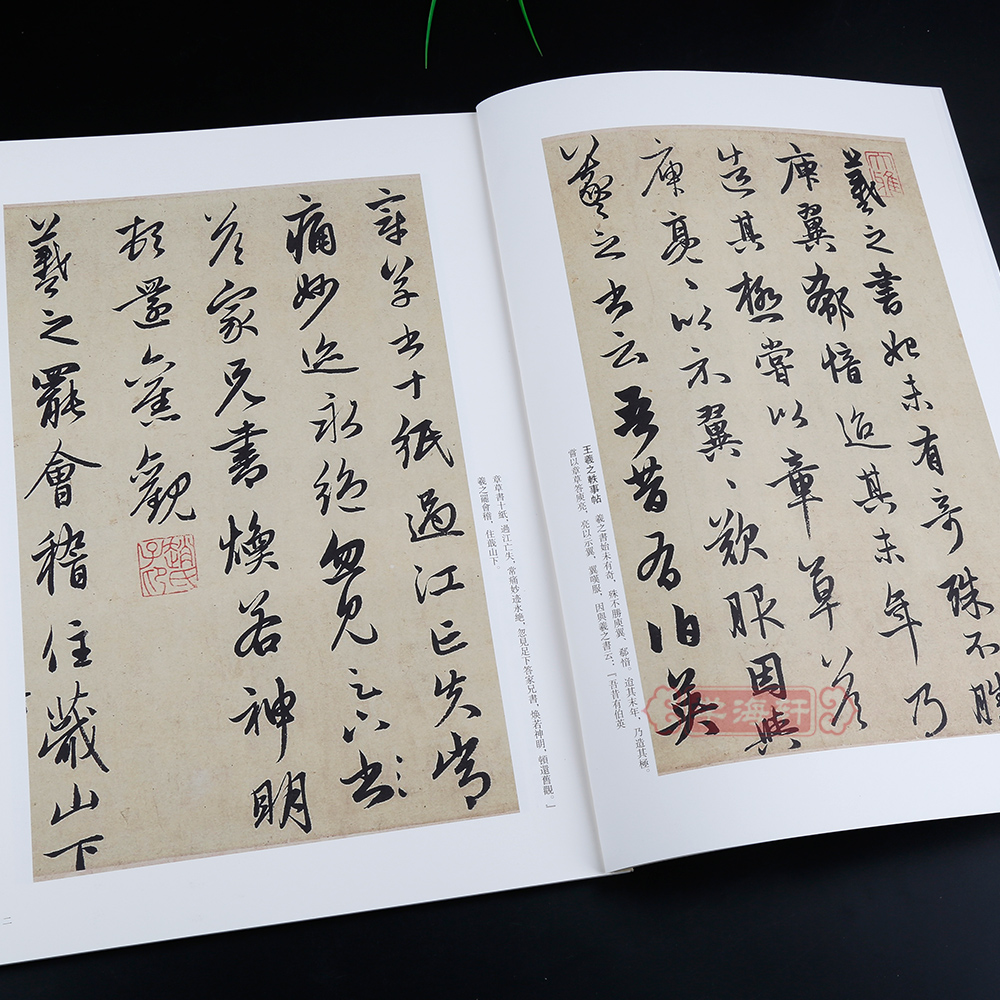 大雅
羲之書始未有奇殊不勝
庾翼郗愔迨其末年乃
造其極嘗以章草答
庾亮〻以示翼〻歎服因與
羲之書云吾昔有伯英
王羲之軼事帖　羲之書始未有奇，殊不勝庾翼、郗愔，迨其末年，乃造其極。
嘗以章草答庾亮，亮以示翼，翼嘆服，因與羲之書云：『吾昔有伯英
章草書十紙過江亡失常
痛妙迹永絕忽見足下書
答家兄書煥若神明
頓還舊觀
趙氏子昂
羲之罷會稽住蕺山下
章草書十紙，過江亡失，常痛妙迹永絕，忽見足下答家兄書，煥若神明，頓還舊觀。』
羲之罷會稽，住蕺山下。
二
海轩